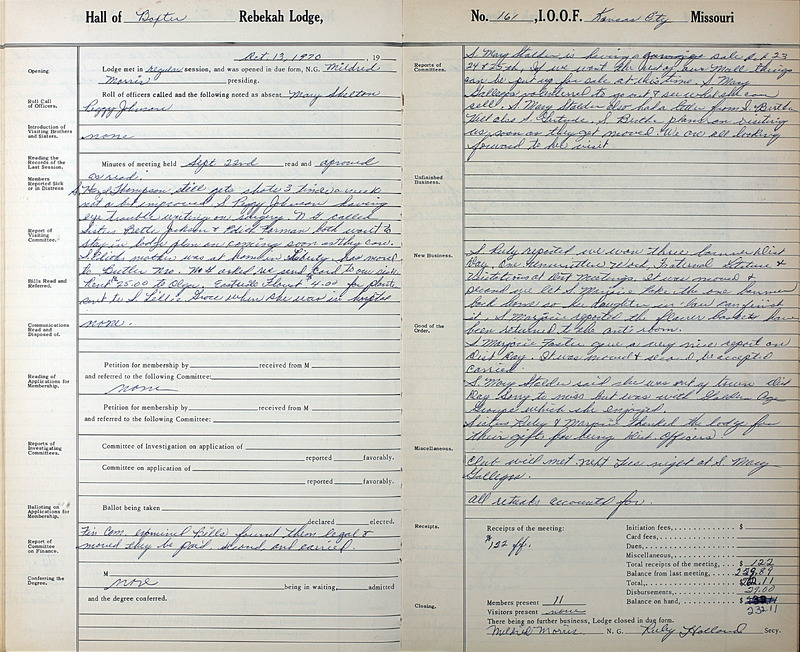 Hall of Baxter Rebekah Lodge,
Oct. 13, 1970 , 19
Opening.
Lodge met in regular session, and was opened in due form, N.G. Mildred
Morris presiding.
Roll Call
of Officers.
Roll of officers called and the following noted as absent Mary Skelton
Peggy Johnson
Introduction of
Visiting Brothers
and Sisters.
none
Reading the
Records of the
Last Session.
Minutes of meeting held Sept 22nd read and aproved
as read.
Members
Reported Sick
or in Distress
S Hazel Thompson still gets shots 3 times a week
not a bit improved. S Peggy Johnson having
eye trouble waiting on surgery. N G called
Sisters Bette Jackson & Edith Herman both want to
Report of
Visiting
Committee.
stay in lodge plan on coming soon as they can.
S Edith mother was at home in Liberty has moved
to Butler Mo. N G asked we send card to our sick.
Bills Read and
Referred.
Rent 25.00 to Olger. Eastside Florist 4.00 for plants
sent to S Lillie Grove when she was in hospital
Communications
Read and
Disposed of.
none.
Reading of
Applications for
Membership.
Petition for membership by received from M
and referred to the following Committee:
none
Petition for membership by received from M
and referred to the following Committee:
Reports of
Investigating
Committees.
Committee of Investigation on application of
reported favorably.
Committee on application of
reported favorably.
Balloting on
Applications for
Membership.
Ballot being taken
declared elected.
Report of
Committee
on Finance.
Fin Com. examined bills found them legal &
moved they be paid, second and carried
Conferring the
Degree.
M
none being in waiting, admitted
and the degree conferred.
No. 161 , I.O.O.F. Kansas City Missouri
Reports of
Committees.
S. Mary Stalder is having a garage sale Oct 23
24 & 25th. If we want the rest of our Mall things
can be put up for sale at this time. S Mary
Gallegos volunteered to go out & see what she can
sell. S Mary Stalder also had a letter from S Bertha
S Gertrude. S Bertha plans on visiting
us soon as they get moved. We are all looking
forward to her visit
Unfinished
Business.
New Business.
S Ruby reported we won three banners Dist
Day, One Generative Work, Fraternal &
Visitations & Dist Meetings. It was moved &
second we let S Marjorie take the one banner
back home so her daughter in law can finish
it. S Marjorie reported the flower baskets have
Good of the
Order.
been returned to the anti room.
S Marjorie Foster gave a very nice report on
Dist Day. It was moved & second be accepted
carried.
S. Mary Stalder said she was out of town Dist
Day Sorry to miss but was with Golden Age
Group which she enjoyed.
Sisters Ruby & Marjorie thanked the lodge for
their gifts for being Dist Officers
Miscellaneous.
Club will met next Tues night at S. Mary
Gallegos.
all rituals accounted for.
Receipts.
Receipts of the meeting:
$1.22
Initiation fees, $
Card fees,
Dues,
Miscellaneous,
Total receipts of the meeting, $ 1.22
Balance from last meeting,
Total,
Disbursements, 29.00
Balance on hand, $
232.11
Members present 11
Visitors present none
Closing.
There being no further business, Lodge closed in due form.
Mildred Morris N. G. Ruby Holland Secy.